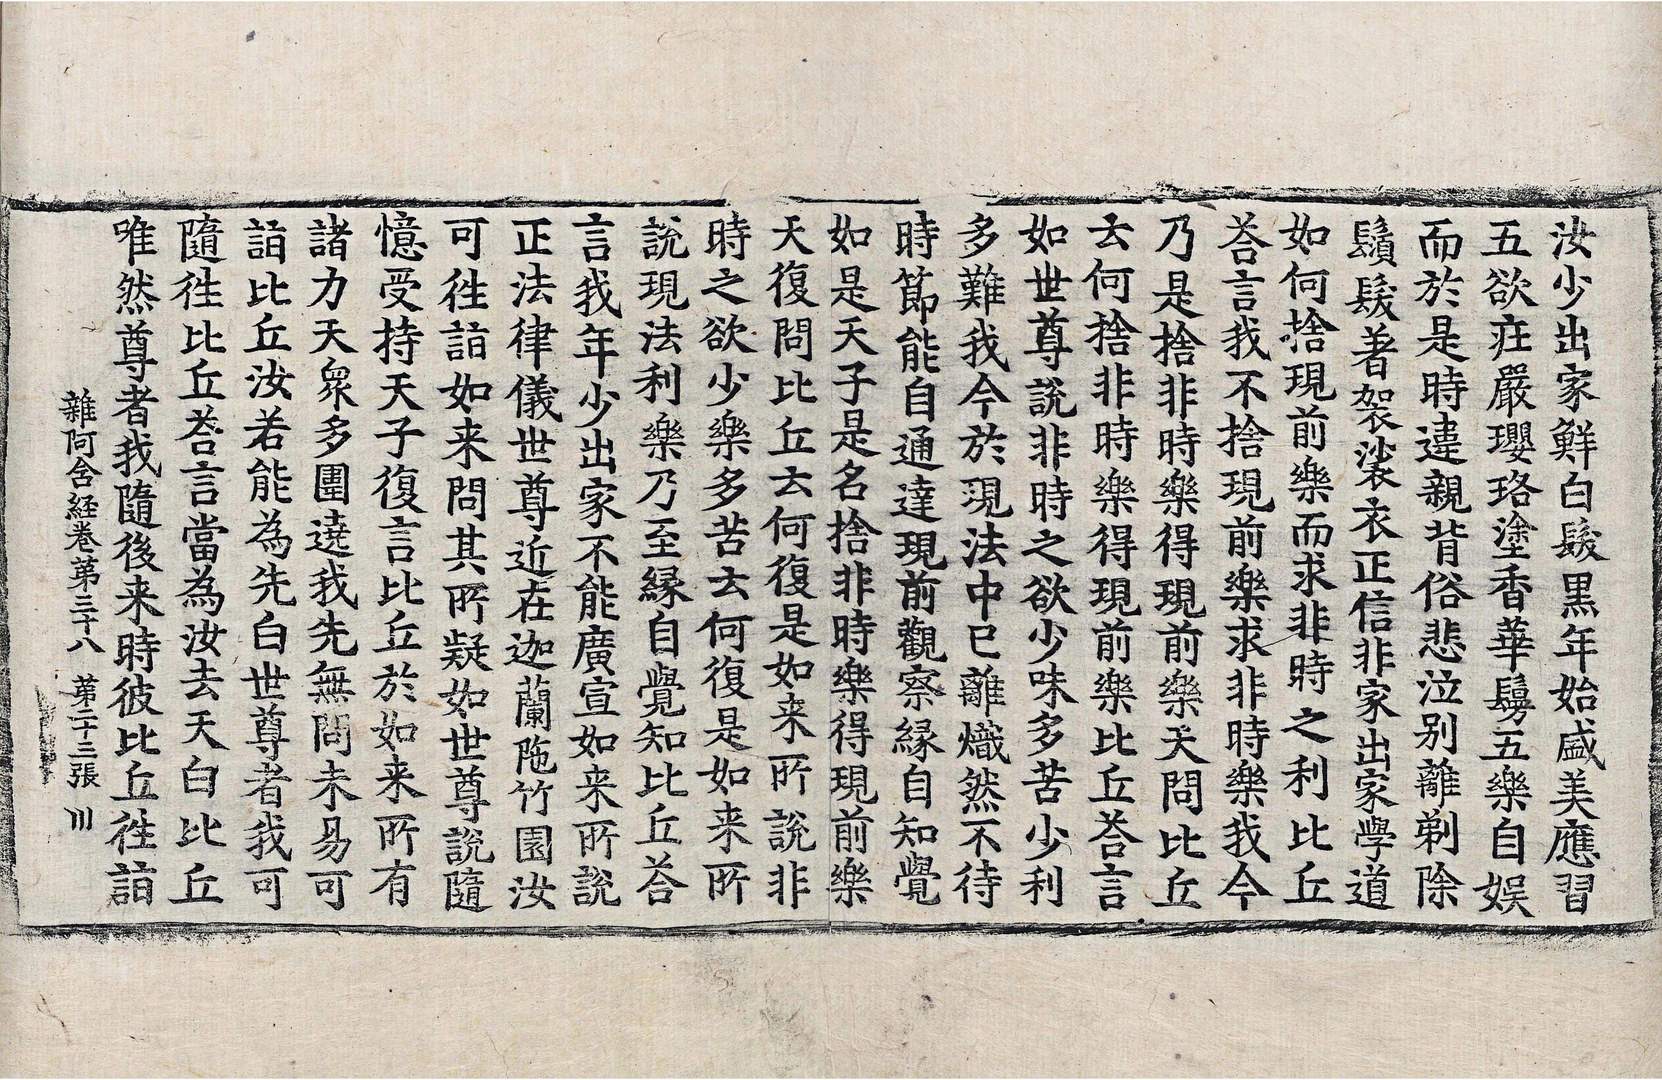 汝少出家鮮白髮黑年始盛美應習
五欲㽵嚴瓔珞塗香華鬘五樂自娛
而於是時違親背俗悲泣別離剃除
鬚髮著袈裟衣正信非家出家學道
如何捨現前樂而求非時之利比丘
荅言我不捨現前樂求非時樂我今
乃是捨非時樂得現前樂天問比丘
云何捨非時樂得現前樂比丘荅言
如世尊說非時之欲少味多苦少利
多難我今於現法中已離熾然不待
時節能自通達現前觀察緣自知覺
如是天子是名捨非時樂得現前樂
天復問比丘云何復是如来所說非
時之欲少樂多苦云何復是如来所
說現法利樂乃至緣自覺知比丘荅
言我年少出家不能廣宣如来所說
正法律儀世尊近在迦蘭陁竹園汝
可徃詣如来問其所疑如世尊說隨
憶受持天子復言比丘於如来所有
諸力天衆多圍遶我先無問未易可
詣比丘汝若能為先白世尊者我可
隨徃比丘荅言當為汝去天白比丘
唯然尊者我隨後来時彼比丘徃詣
雜阿含経卷第三十八 第二十三張 川